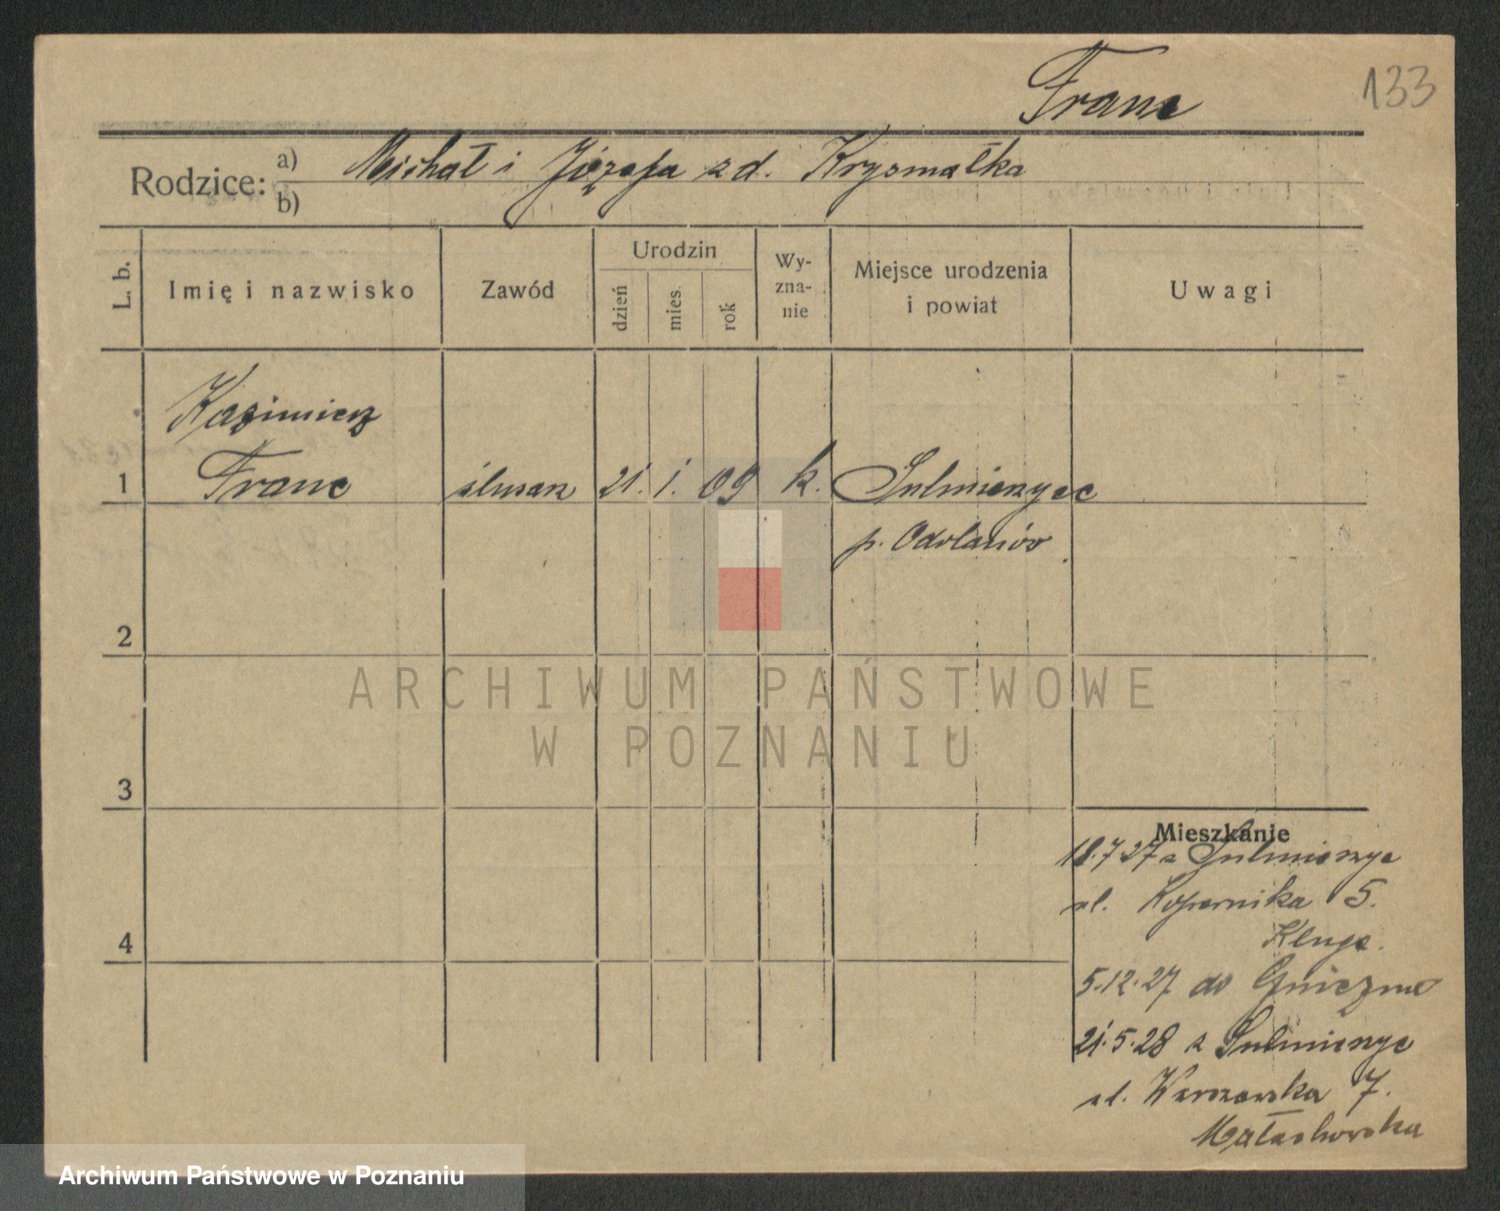 Franc
133
Rodzice: a) Michał i Józefa z d. Krysmalka
b)
L. b.
Imię i nazwisko
Zawód
Urodzin
dzień
mies.
rok
Wy-
zna-
nie
Miejsce urodzenia
i powiat
Uwagi
Kazimierz
1 Franc ślusarz 21. 1. 09 k. Sulmierzyce
p. Odolanów
2
3
4
Mieszkanie
18.7.27 z Sulmierzyc
ul. Kopernika 5.
Kluge.
5.12.27 do Gniezna
21.5.28 z Sulmierzyc
ul. Warszawska 7.
Małachowska
ARCHIWUM PAŃSTWOWE
W POZNANIU
Archiwum Państwowe w Poznaniu